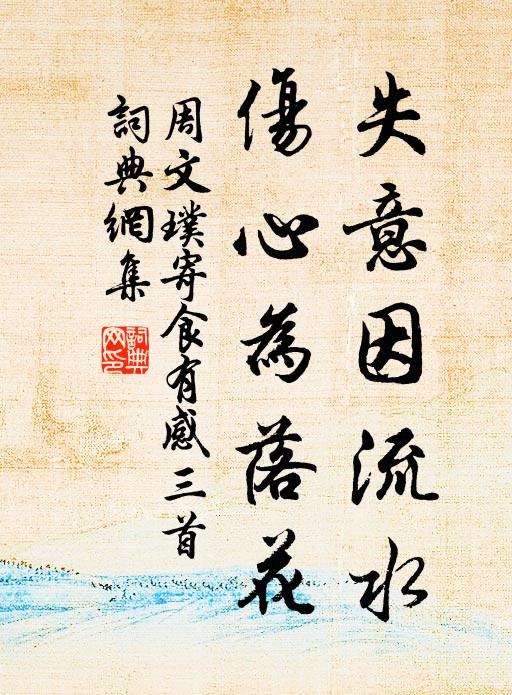 失意因流水
傷心為落花
周文璞寄食有感三首
詞典網集
詞典網印